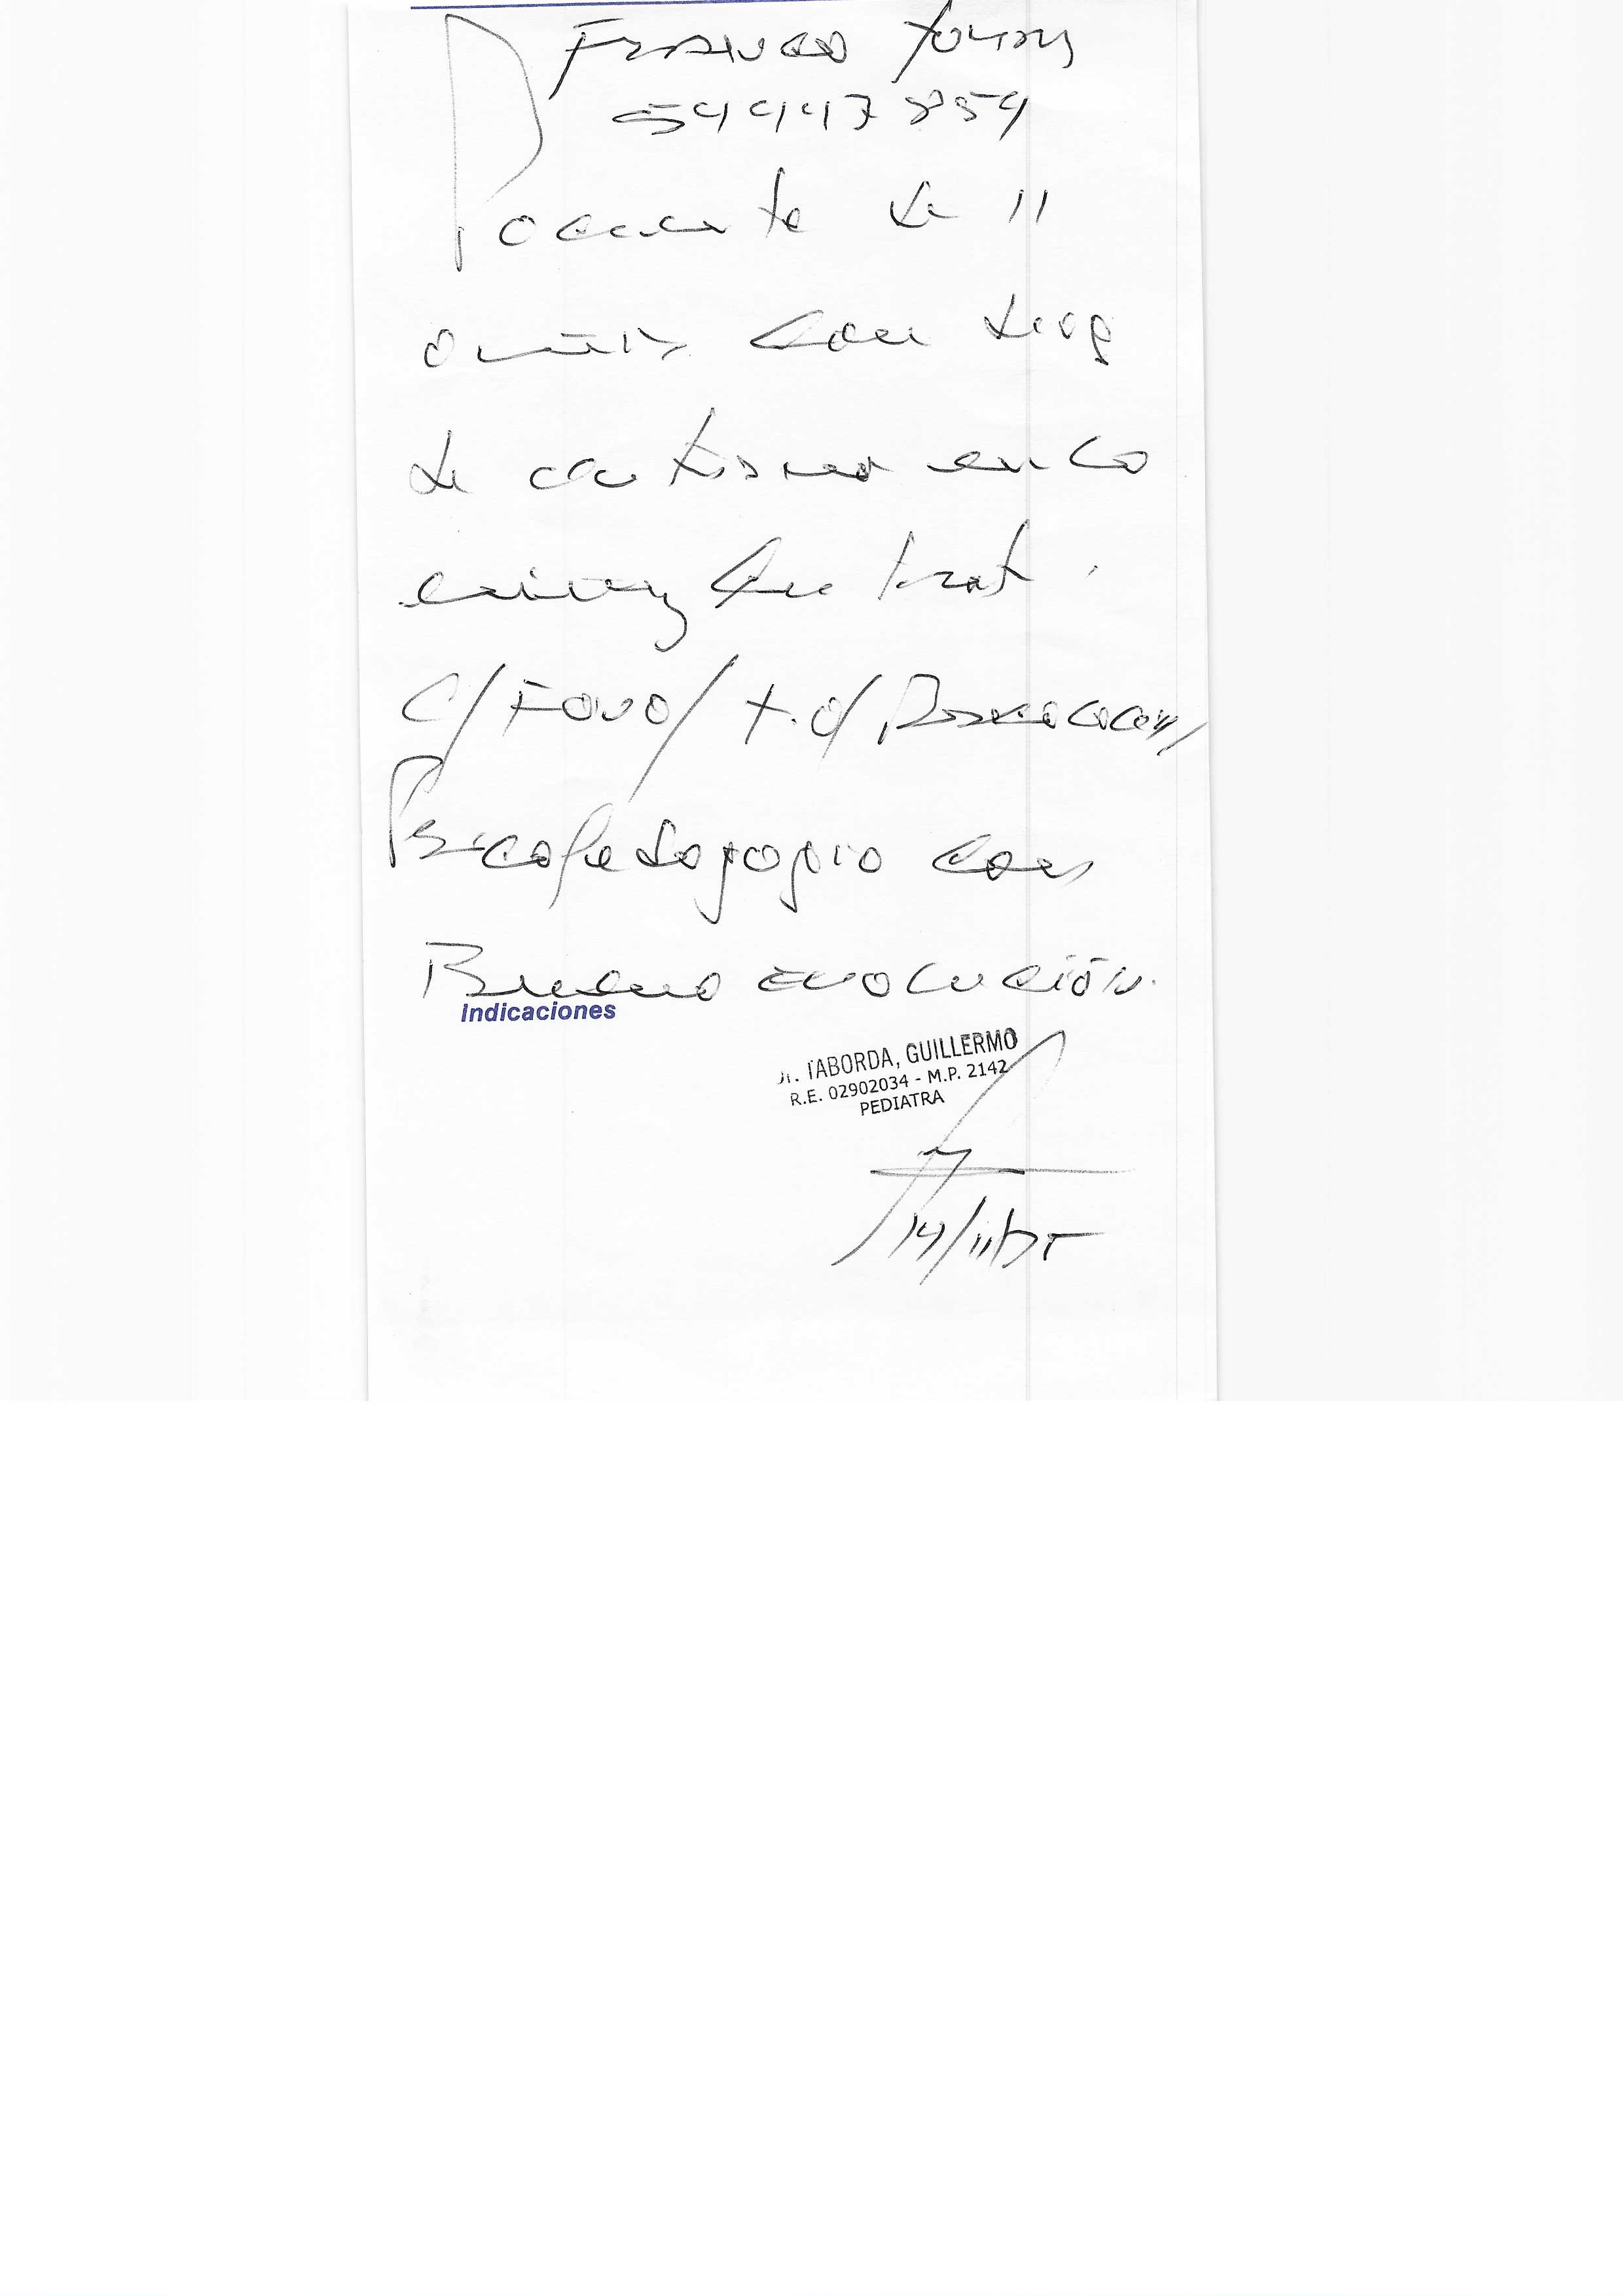 Franco
54447854
Paciente de 11
años con diag
de autismo en la
con trat.
C/Fono/T.O/
Psicopedagogia con
Buena evolución.
Indicaciones
Dr. TABORDA, GUILLERMO
R.E. 02902034 - M.P. 2142
PEDIATRA
14/11/25